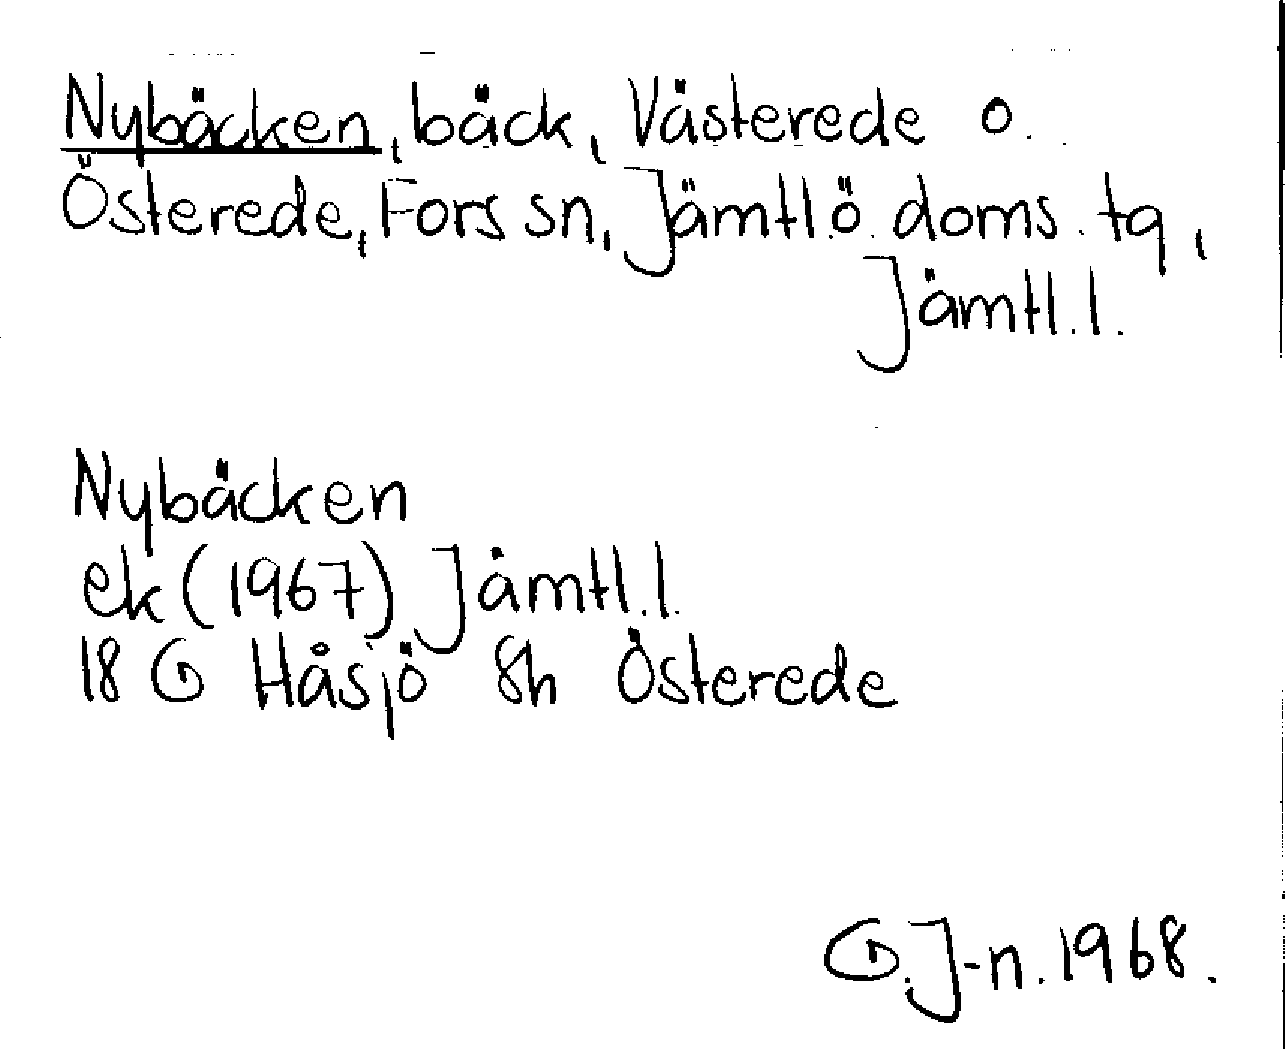 Nybäcken, bäck, Västerede o.
Österede, Fors sn, Jämtl.ö. doms. tg,
Jämtl. l.
Nybäcken
ek (1967) Jämtl. l.
18 G Håsjö 8h Österede
G. J-n. 1968.